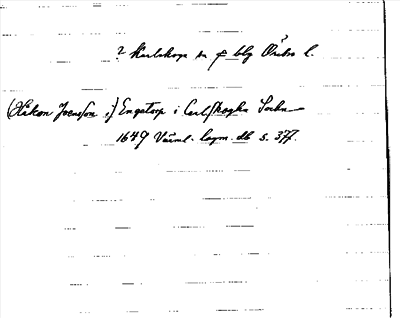 ? Karlskoga sn o blg Örebro l.
(Håkon Joensson i) Engatorp i Carlskogha Sochn
1649 Värml. lagm. db s. 377.